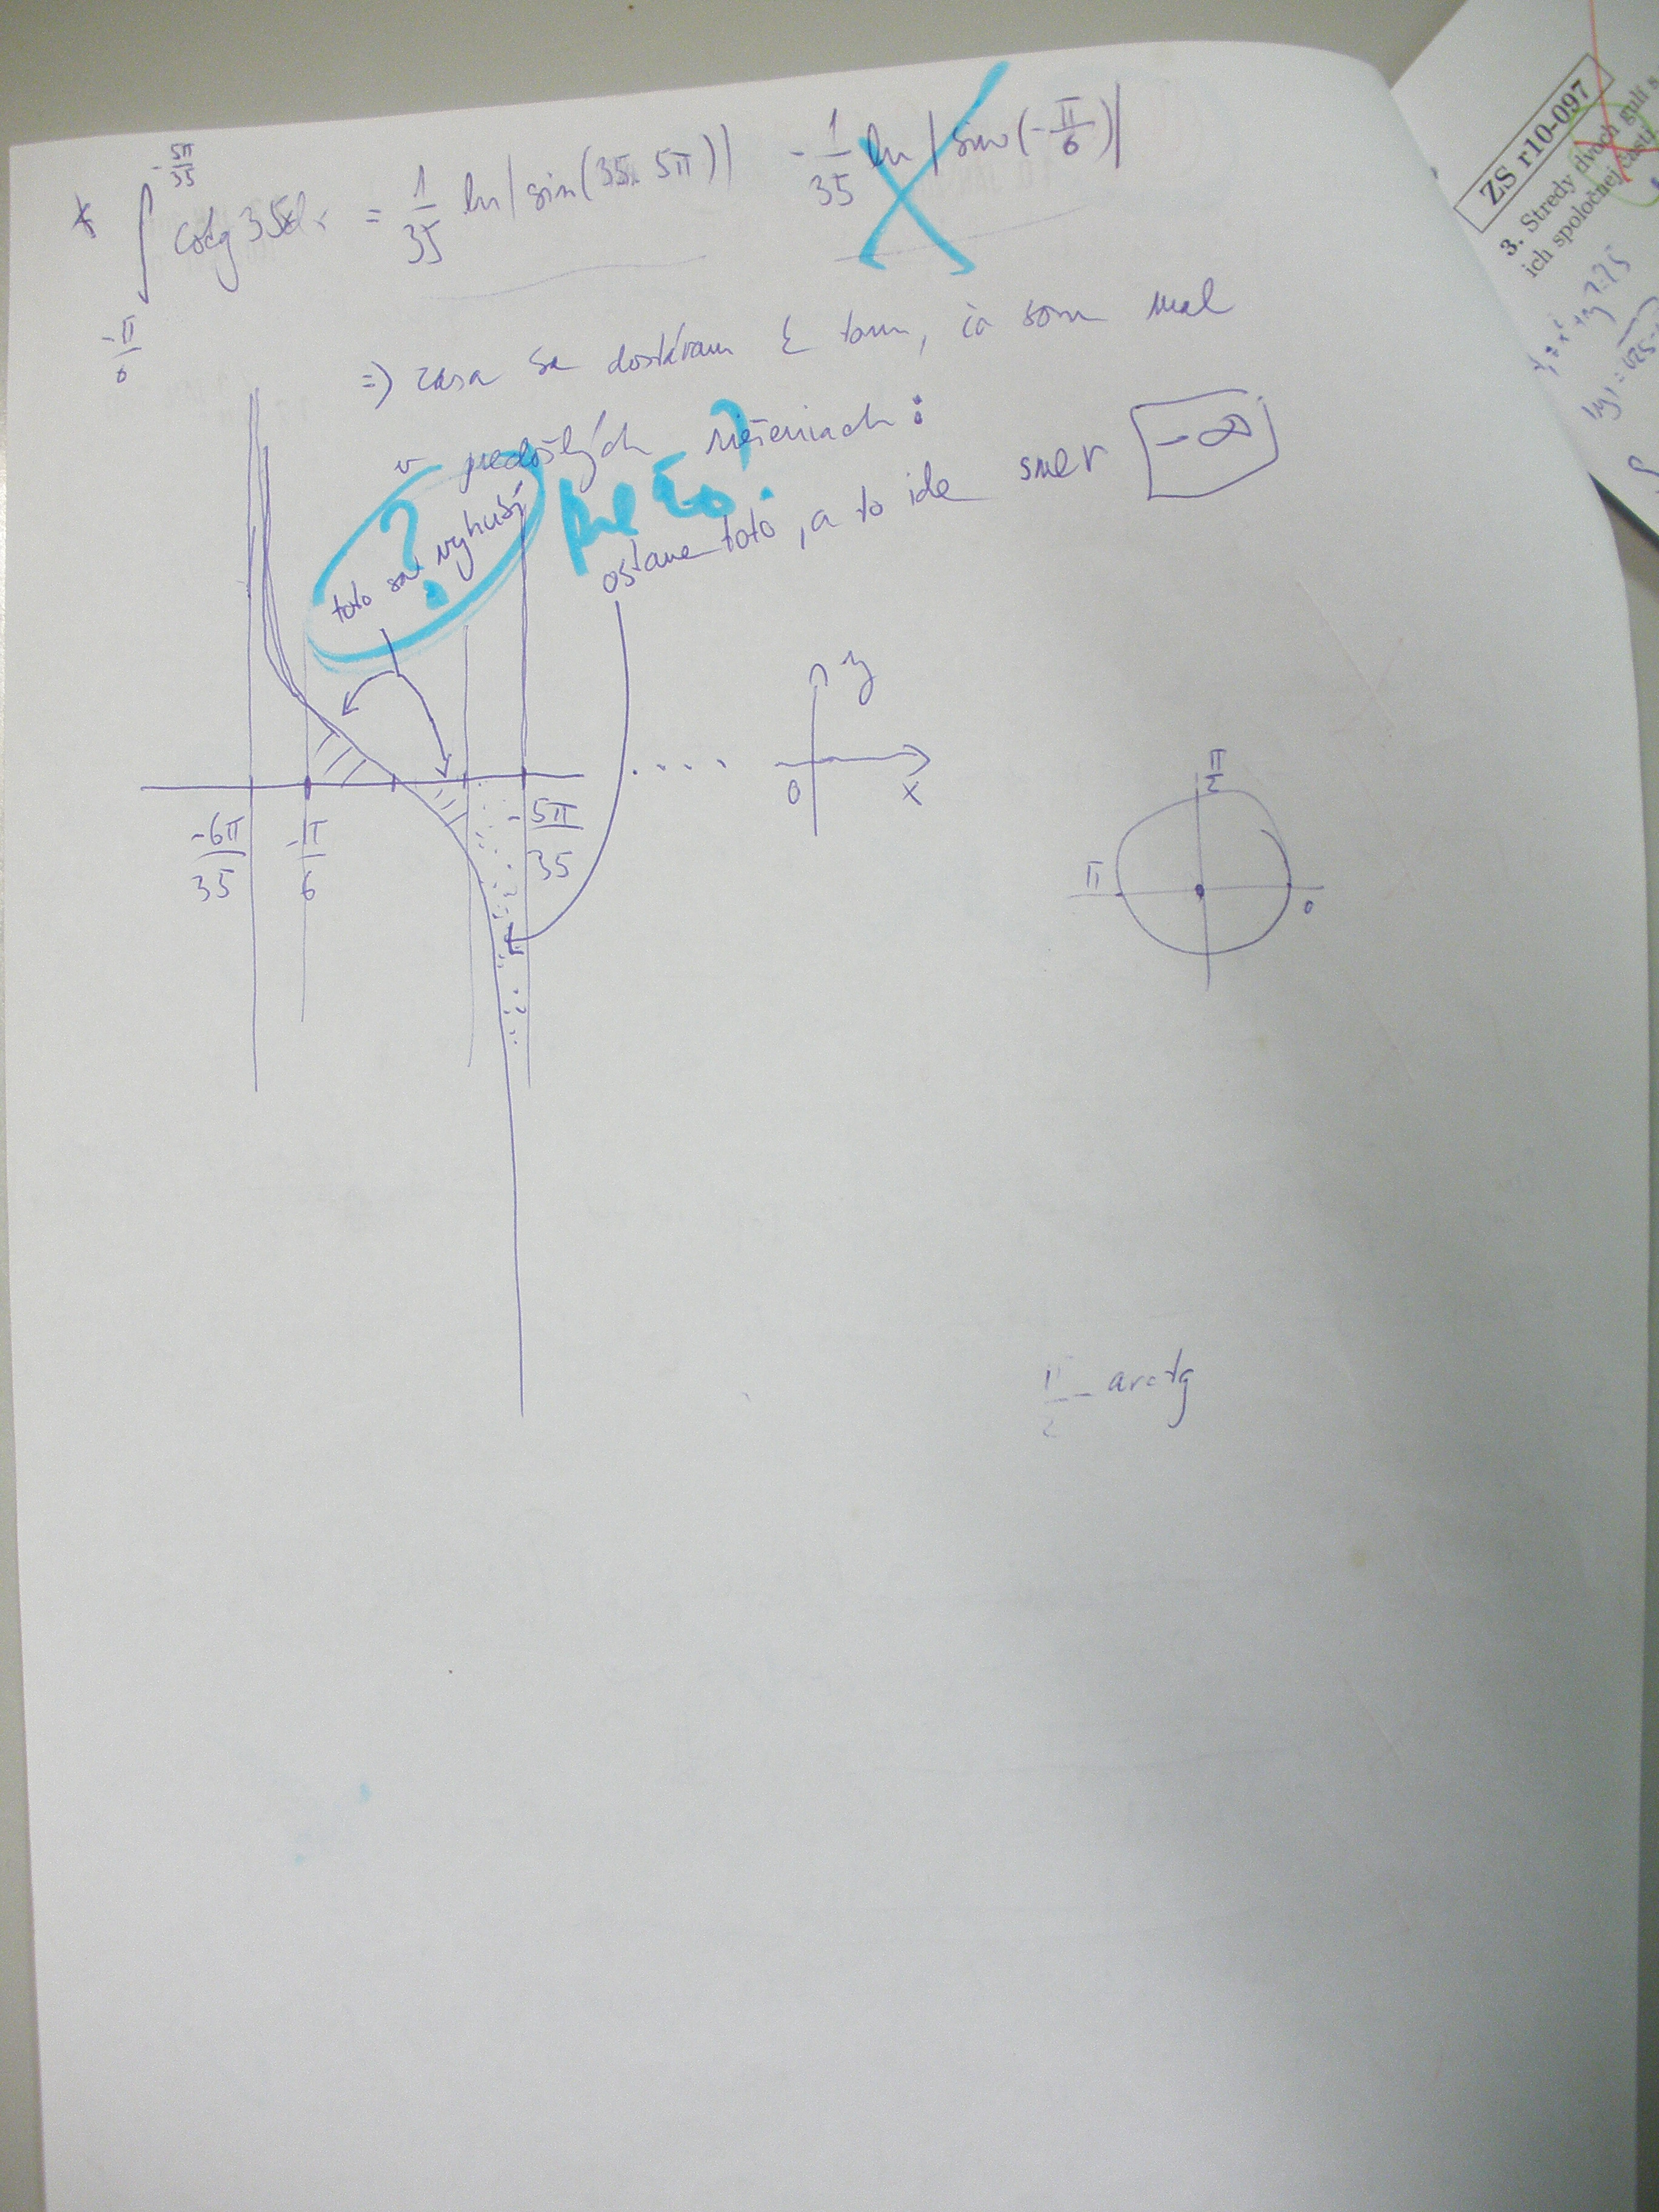 * ∫ cotg 35x dx = 1/35 ln|sin(35. 5π)| - 1/35 ln|sin(-π/6)|
-5π/35
-π/6
=> zasa sa dostávam k tomu, čo som mal
v predošlých riešeniach:
prečo?
?
toto sa vyruší
ostane toto, a to ide smer -∞
y
0
x
-6π/35
-π/6
-5π/35
π/2
π
0
π/2 - arctg
ZS r10-097
3. Stredy dvoch gulí s
ich spoločnej časti.